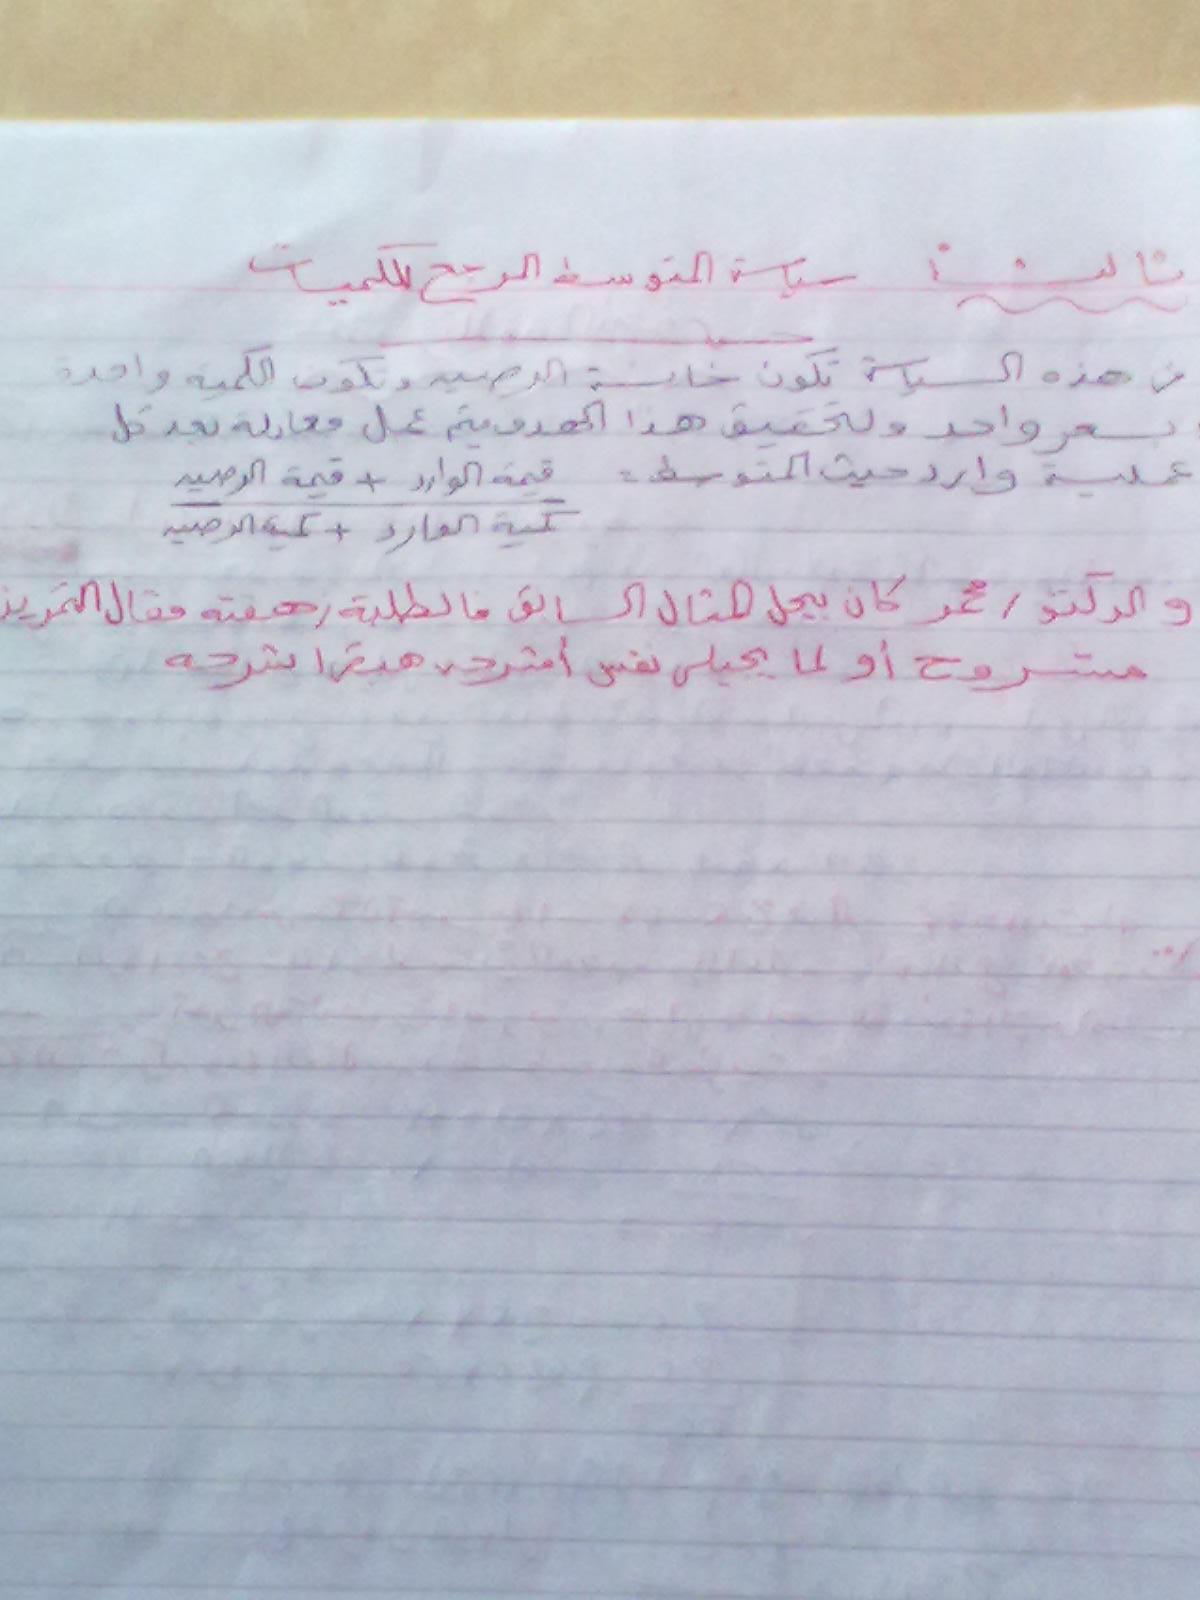 ثالثا : سياسة المتوسط المرجح للكميات
من هذه السياسة تكون خانة الرصيد وتكون الكمية واحدة
بسعر واحد ولتحقيق هذا الهدف يتم عمل معادلة بعد كل
عملية وارد حيث المتوسط = قيمة الوارد + قيمة الرصيد
كمية الوارد + كمية الرصيد
والدكتور / محمد كان بيحل المثال السابق فالطلبة زهقته فقال التمرين
مشروح أو لما يجيلى نفس أشرحه هبقى اشرحه